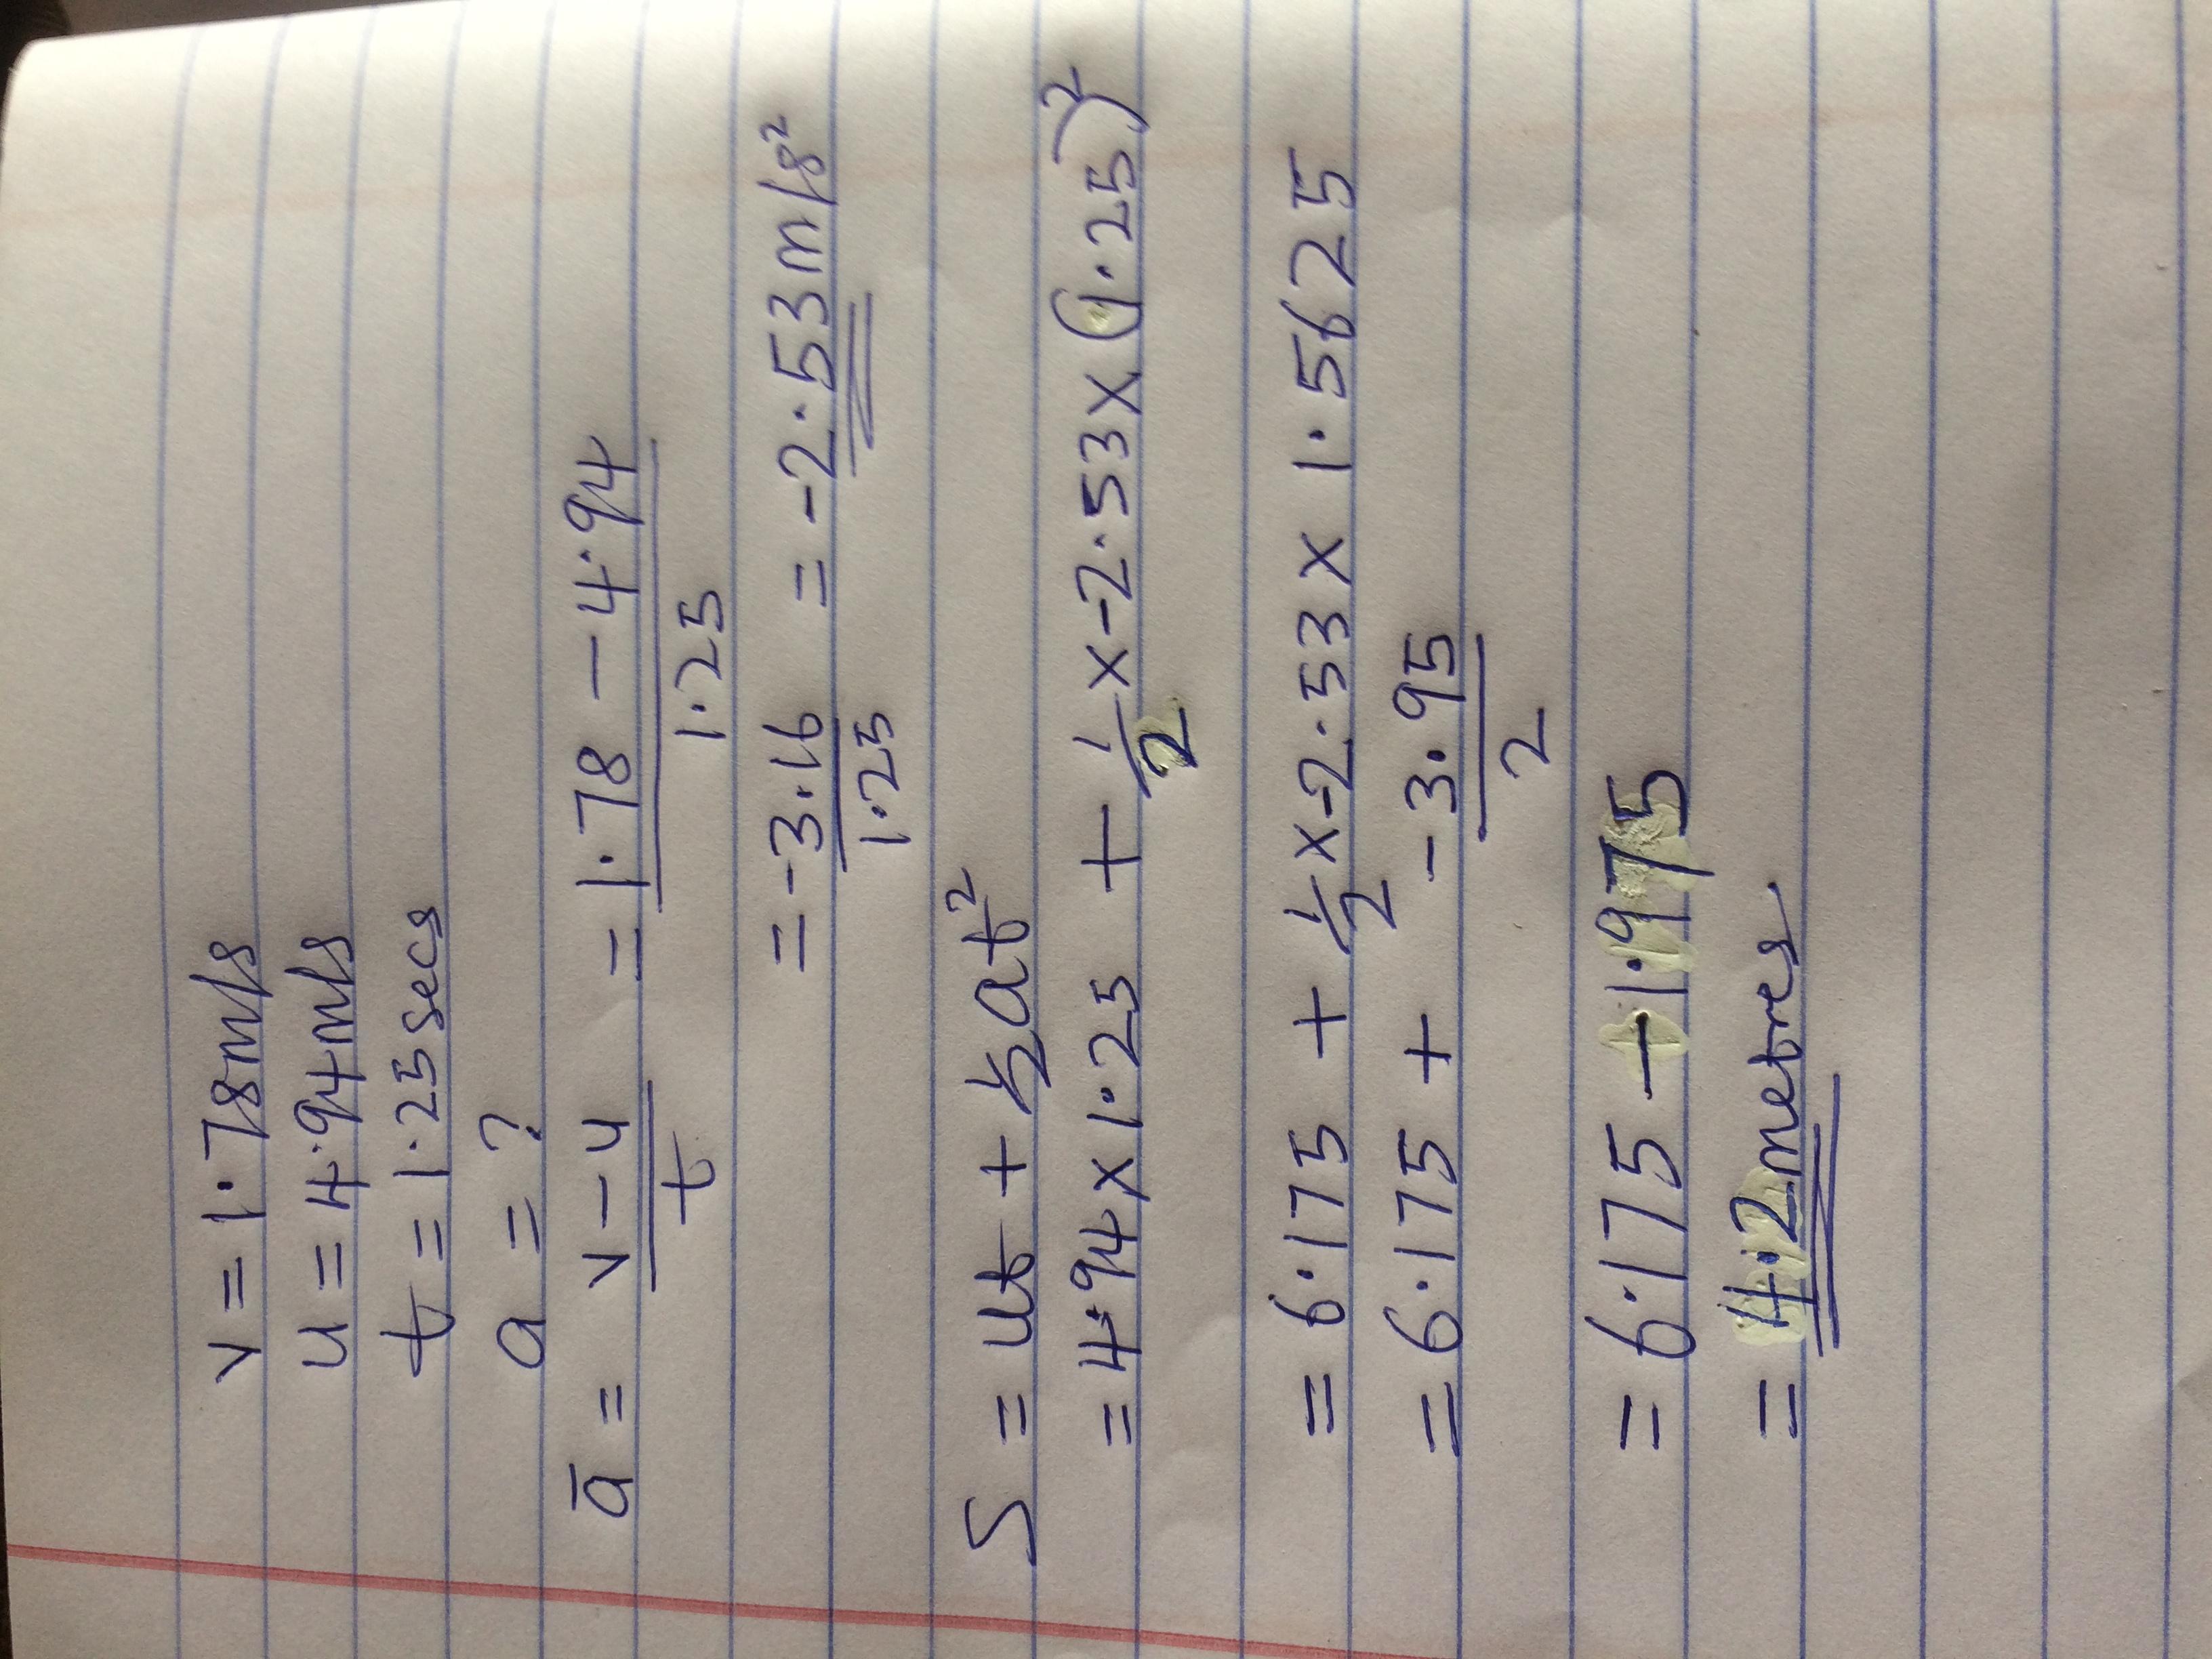 v = 1.78m/s
u = 4.94m/s
t = 1.25secs
a = ?
a̅ = v-u/t = 1.78 - 4.94/1.25
= -3.16/1.25 = -2.53m/s²
S = ut + ½at²
= 4.94 x 1.25 + ½ x -2.53 x (1.25)²
= 6.175 + ½ x -2.53 x 1.5625
= 6.175 + -3.95/2
= 6.175 - 1.975
= 4.2 metres